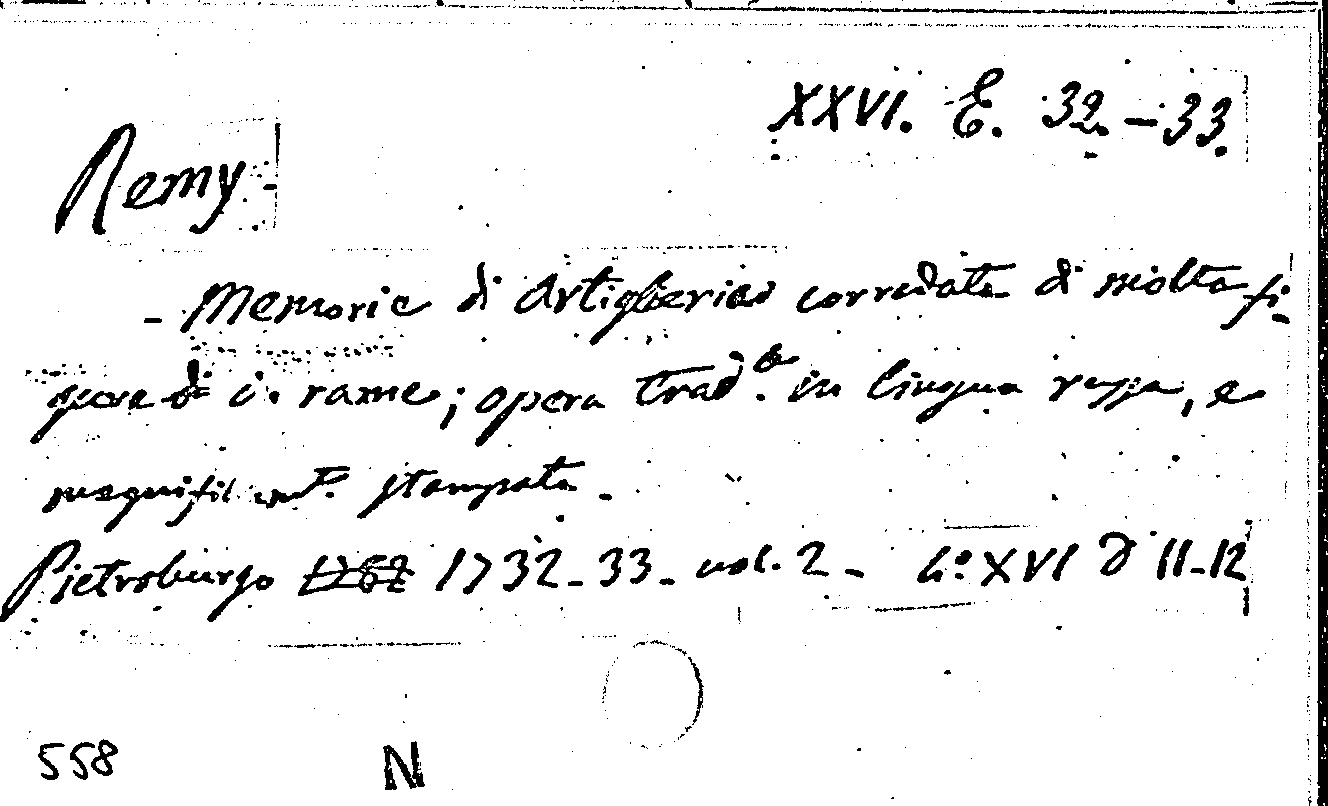 XXVI. E. 32.-33.
Remy -
- Memorie di Artiglieria corredate di molta fi-
gure in rame; opera trad.e in lingua russa, e
magnificamt. stampata.
Pietroburgo 1732-33. vol. 2 - 4.° XVI D 11-12
558 N